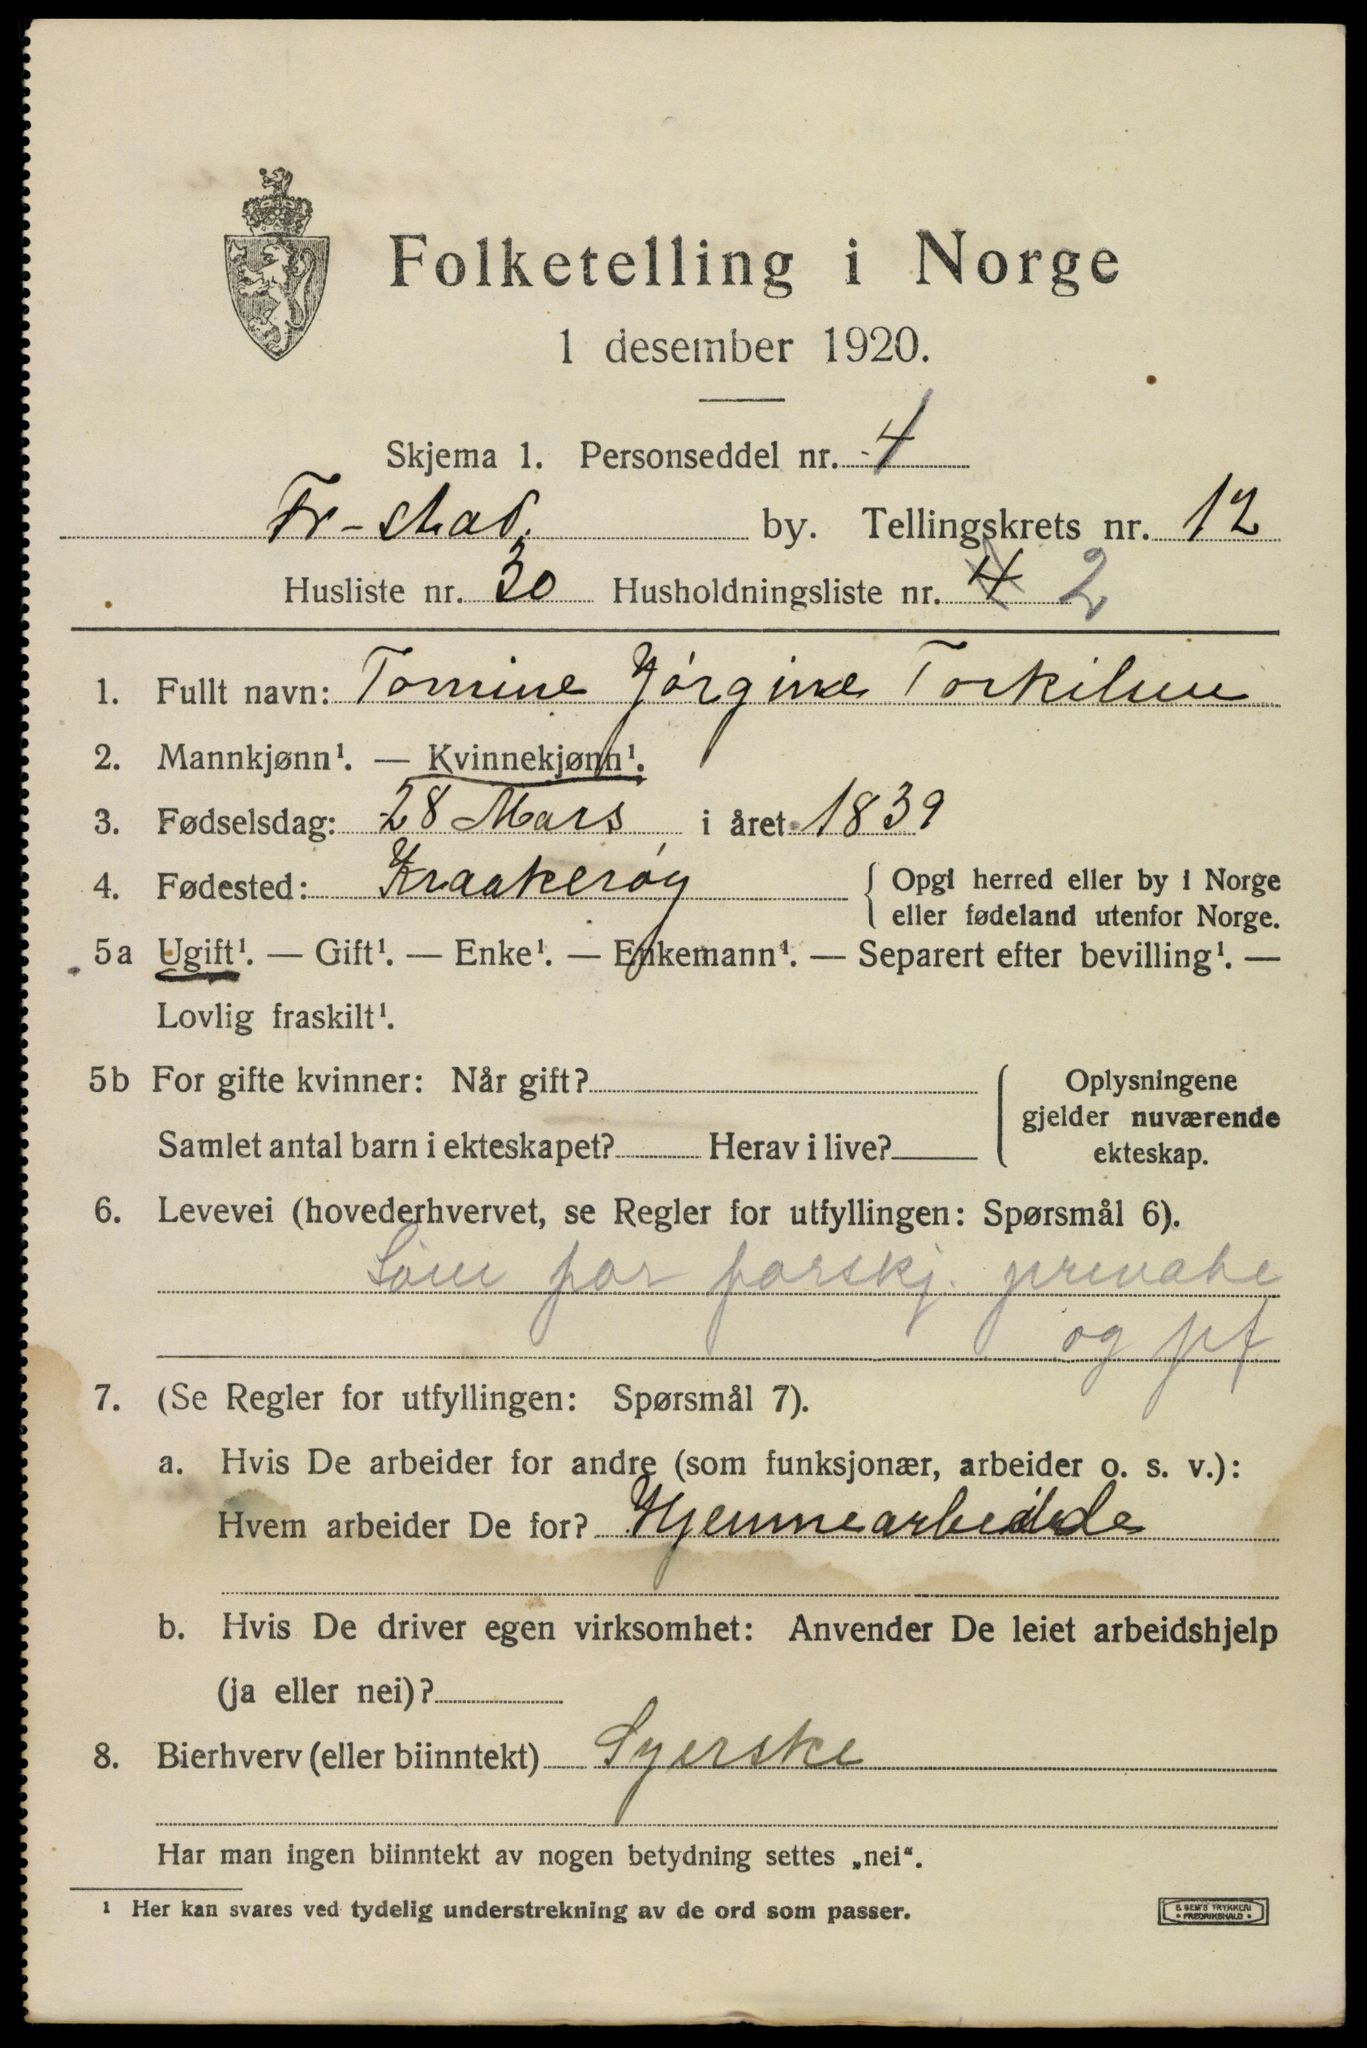 Folketelling i Norge
1 desember 1920.
Skjema 1. Personseddel nr. 4
Fr-stad. by. Tellingskrets nr. 12
Husliste nr. 30 Husholdningsliste nr. 4 2
1. Fullt navn: Tomine Jørgine Torkilsen
2. Mannkjønn¹. — Kvinnekjønn¹.
3. Fødselsdag: 28 Mars i året 1839
4. Fødested: Kraakerøy { Opgi herred eller by i Norge
eller fødeland utenfor Norge.
5a Ugift¹. — Gift¹. — Enke¹. — Enkemann¹. — Separert efter bevilling¹. —
Lovlig fraskilt¹.
5b For gifte kvinner: Når gift? { Oplysningene
gjelder nuværende
Samlet antal barn i ekteskapet? Herav i live? ekteskap.
6. Levevei (hovederhvervet, se Regler for utfyllingen: Spørsmål 6).
for forskj. private
og pf
7. (Se Regler for utfyllingen: Spørsmål 7).
a. Hvis De arbeider for andre (som funksjonær, arbeider o. s. v.):
Hvem arbeider De for? Hjemmearbeide
b. Hvis De driver egen virksomhet: Anvender De leiet arbeidshjelp
(ja eller nei)?
8. Bierhverv (eller biinntekt) Syerske
Har man ingen biinntekt av nogen betydning settes „nei“.
¹ Her kan svares ved tydelig understrekning av de ord som passer.
E. SEM'S TRYKKERI
• FREDRIKSHALD •